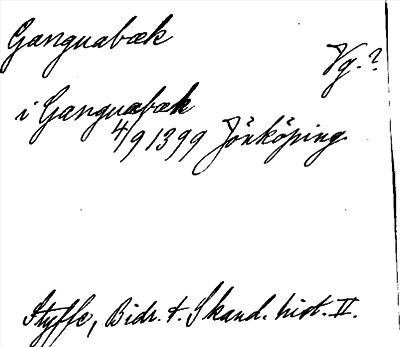 Ganguabæk
Vg.?
i Ganguabæk
4/9 1399 Jönköping
Styffe, Bidr. t. Skand. hist. II.